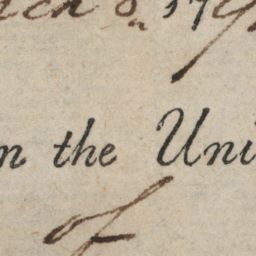 8 179
n the Uni
of